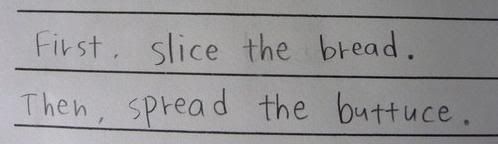 First, slice the bread.
Then, spread the buttuce.